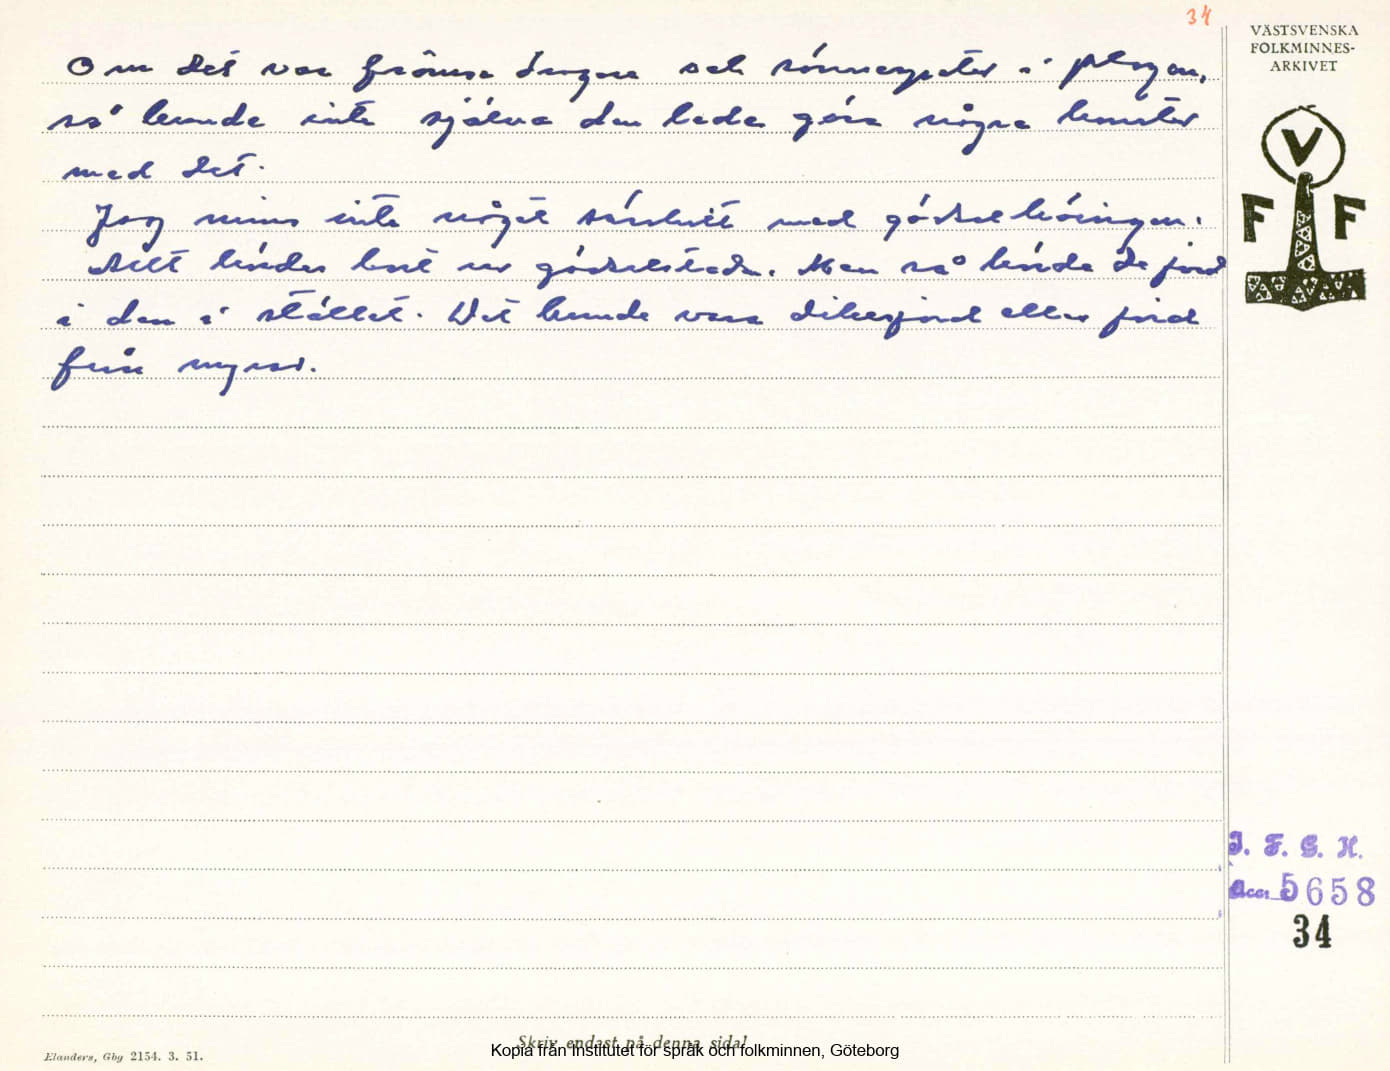 34
VÄSTSVENSKA
FOLKMINNES-
ARKIVET
V
F F
Om det var främre och i plogen,
så kunde inte själva den lede göra några konster
med det.
Jag mins inte något särskilt med gödselköringen.
Allt kördes bort ur gödselstaden. Men så körde de jord
i den i stället. Det kunde vara dikesjord eller jord
från myrar.
I. F. G. H.
Acc. 5658
34
Skriv endast på denna sida!
Kopia från Institutet för språk och folkminnen, Göteborg
Elanders, Gbg 2154. 3. 51.